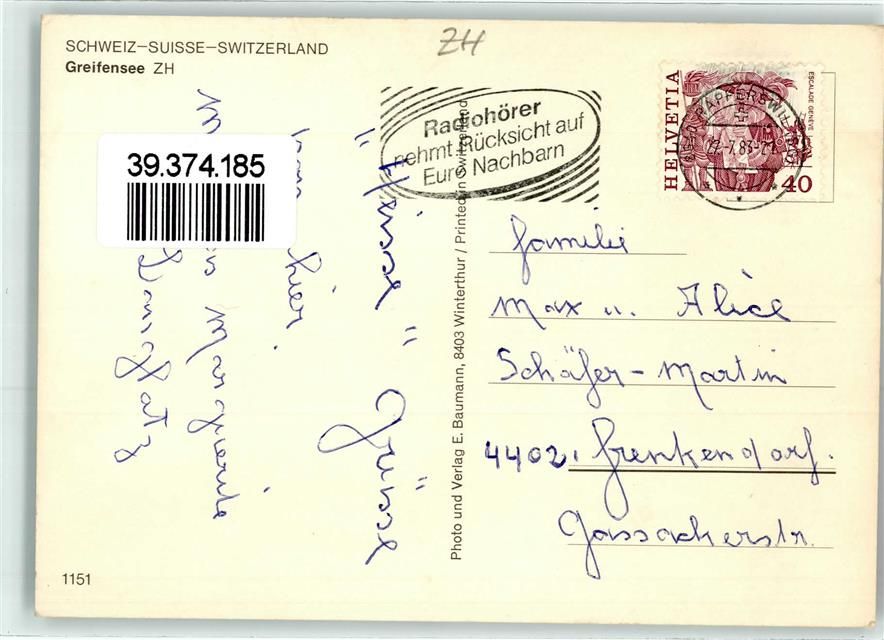 SCHWEIZ–SUISSE–SWITZERLAND
Greifensee ZH
ZH
39.374.185
Radiohörer
nehmt Rücksicht auf
Eure Nachbarn
HELVETIA
ESCALADE GENÈVE
RAPPERSWIL
-7.83-
40
"Heisse" Grüsse
hier
Margrit
Photo und Verlag E. Baumann, 8403 Winterthur / Printed in Switzerland
Familie
Max u. Alice
Schäfer-Martin
4402, Frenkendorf.
Gassackerstr.
1151